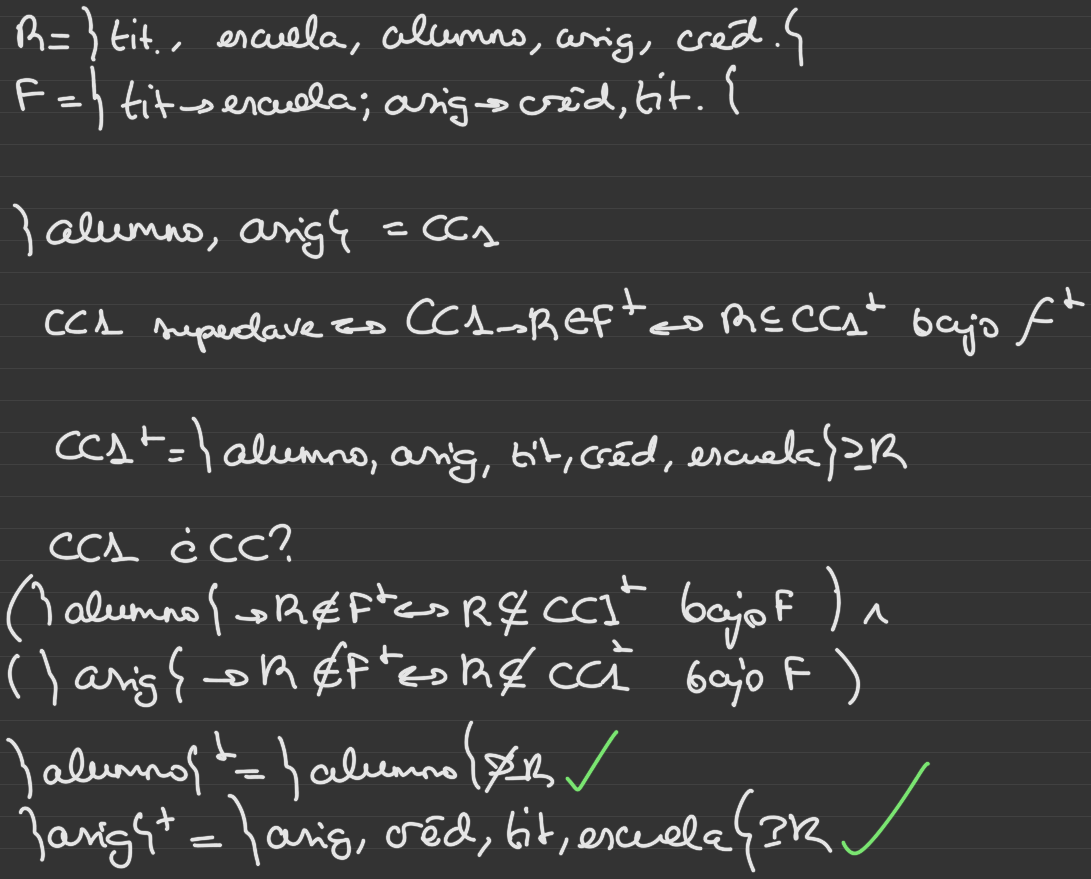 R= }tit., escuela, alumno, asig, créd.{
F = } tit→escuela; asig→créd, tit. {
} alumno, asig{ = CC1
CC1 superclave ⇔ CC1→R∈F⁺ ⇔ R⊆CC1⁺ bajo F⁺
CC1⁺= } alumno, asig, tit, créd, escuela}⊇R
CC1 ¿CC?
(} alumno{ →R∉F⁺⇔ R⊈CC1⁺ bajo F ) ∧
(} asig{ →R∉F⁺⇔ R⊈ CC1⁺ bajo F )
}alumno{⁺= }alumno{⊉R ✓
}asig{⁺ = }asig, créd, tit, escuela{⊇R ✓